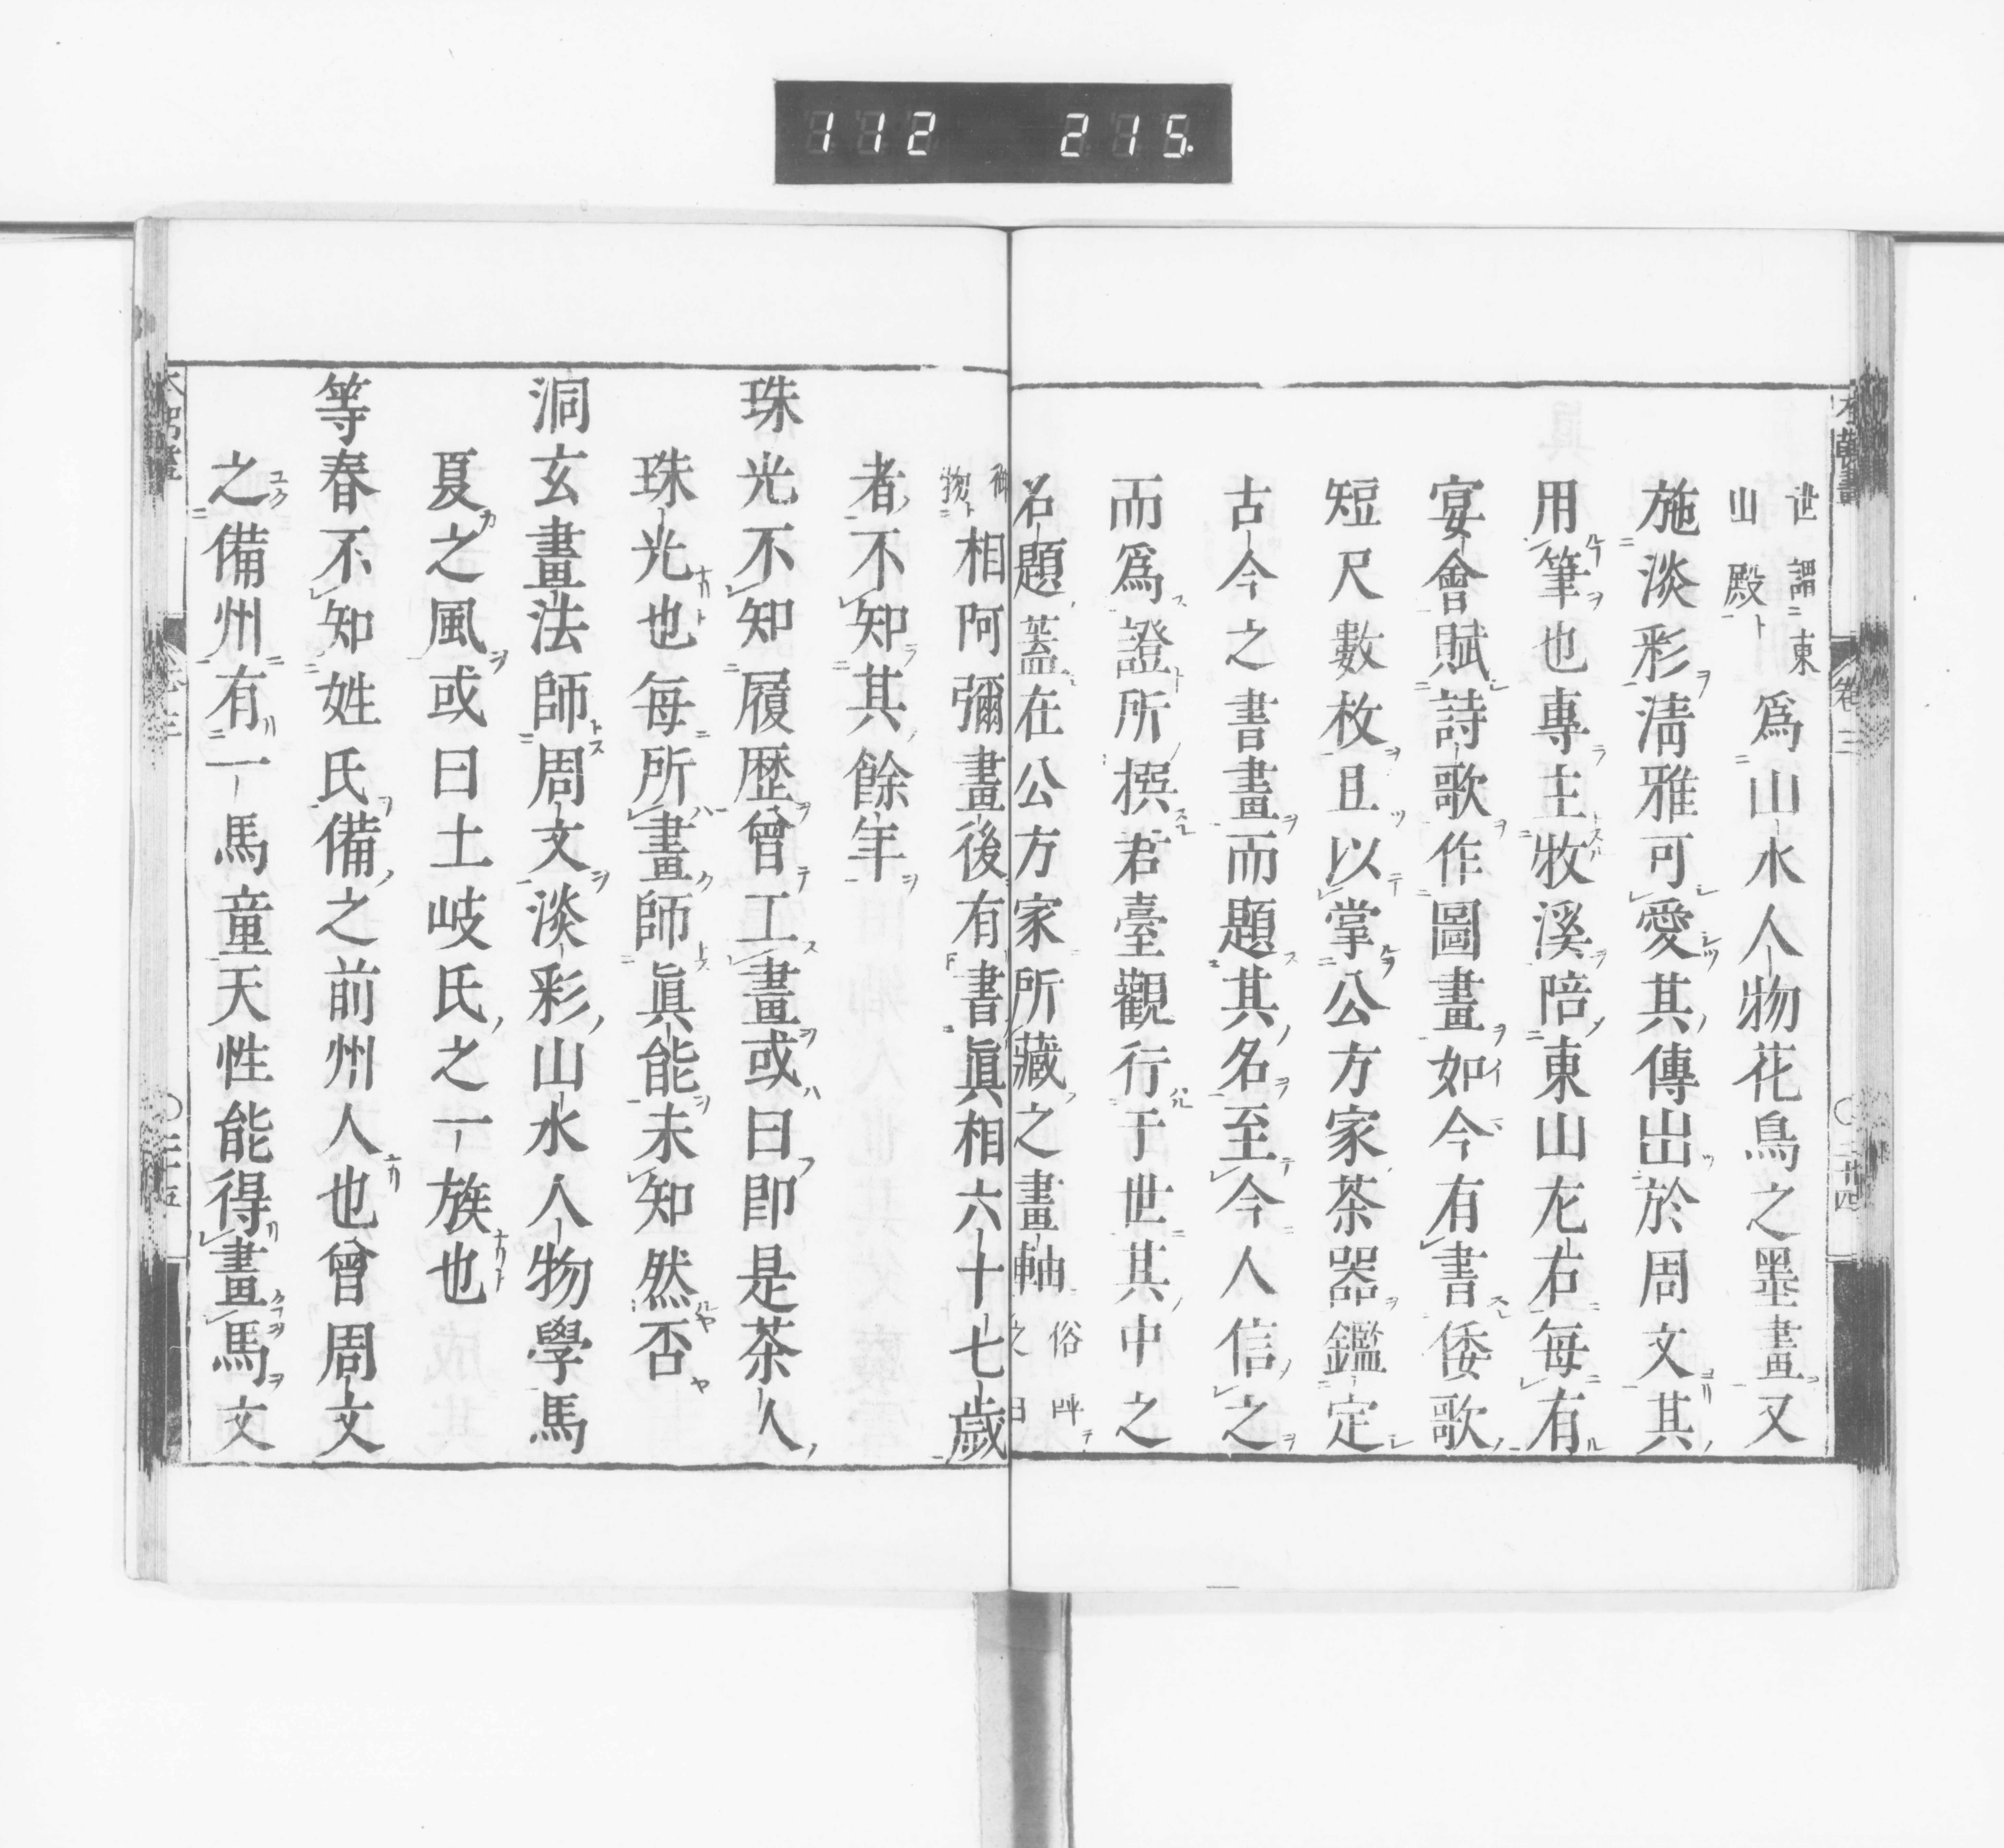 112 215.
世謂東山殿爲山水人物花鳥之墨畫又
施淡彩淸雅可愛其傳出於周文其
用筆也專主牧溪陪東山左右每有
宴會賦詩歌作圖畫如今有書倭歌
短尺數枚且以掌公方家茶器鑑定
古今之書畫而題其名至今人信之
而爲證所撰君臺觀行于世其中之
名題蓋在公方家所藏之畫軸俗呼之曰
御物相阿彌畫後有書眞相六十七歲
者不知其餘年
珠光不知履歷曾工畫或曰卽是茶人
珠光也每所畫師眞能未知然否
洞玄畫法師周文淡彩山水人物學馬
夏之風或曰土岐氏之一族也
等春不知姓氏備之前州人也曾周文
之備州有一馬童天性能得畫馬文